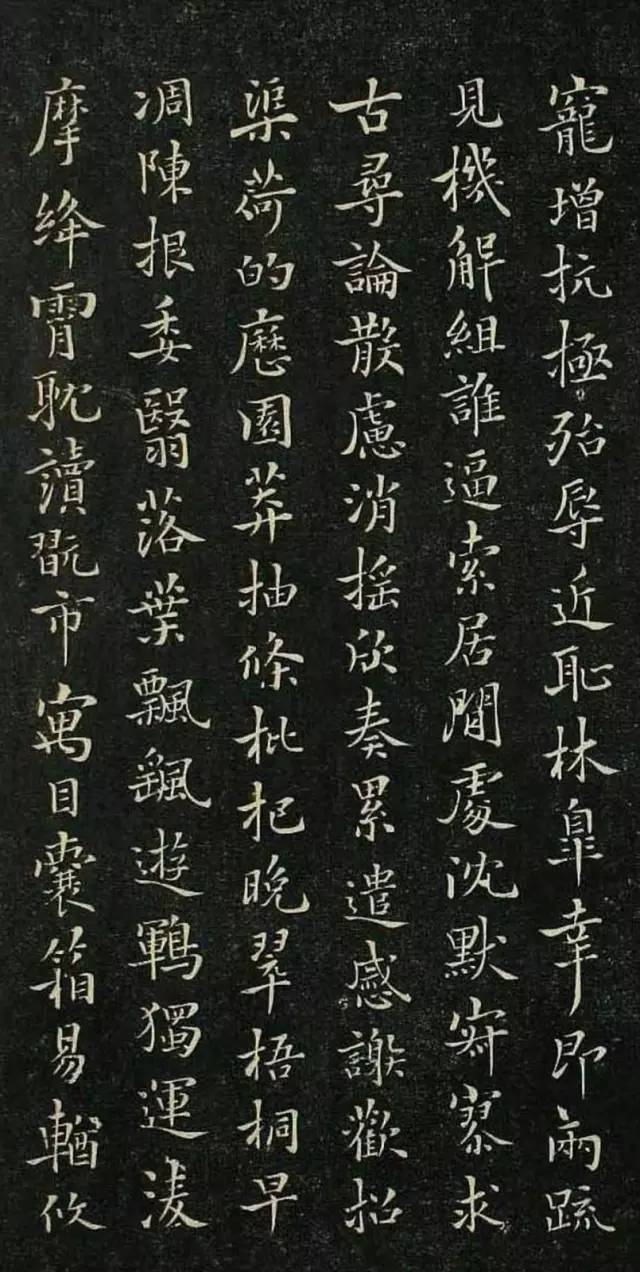 寵增抗極殆辱近恥林皐幸即兩疏
見機解組誰逼索居閒處沈默寂寥求
古尋論散慮逍搖欣奏累遣感謝歡招
渠荷的歷園莽抽條枇杷晚翠梧桐早
凋陳根委翳落葉飄颻遊鵾獨運淩
摩絳霄耽讀翫市寓目囊箱易輶攸